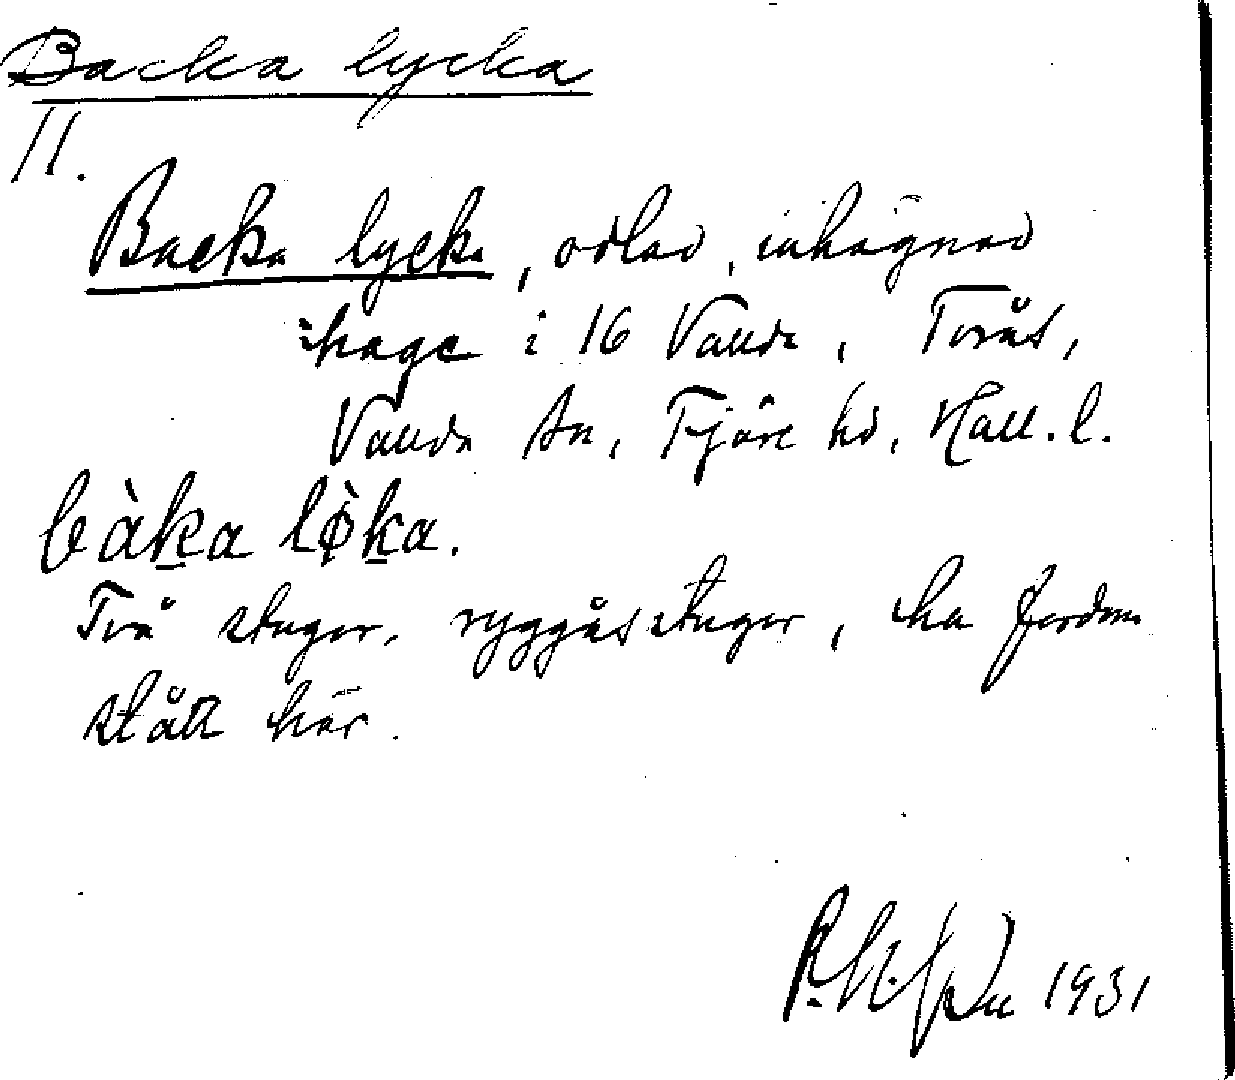 Backa lycka
11.
Backa lycka, odlad, inhägnad
ihage i 16 Valda, Tvrås,
Valda sn, Fjäre hd, Hall. l.
bàka lø̀ka.
Två stugor, ryggåsstugor, ha fordom
stått här.
1931